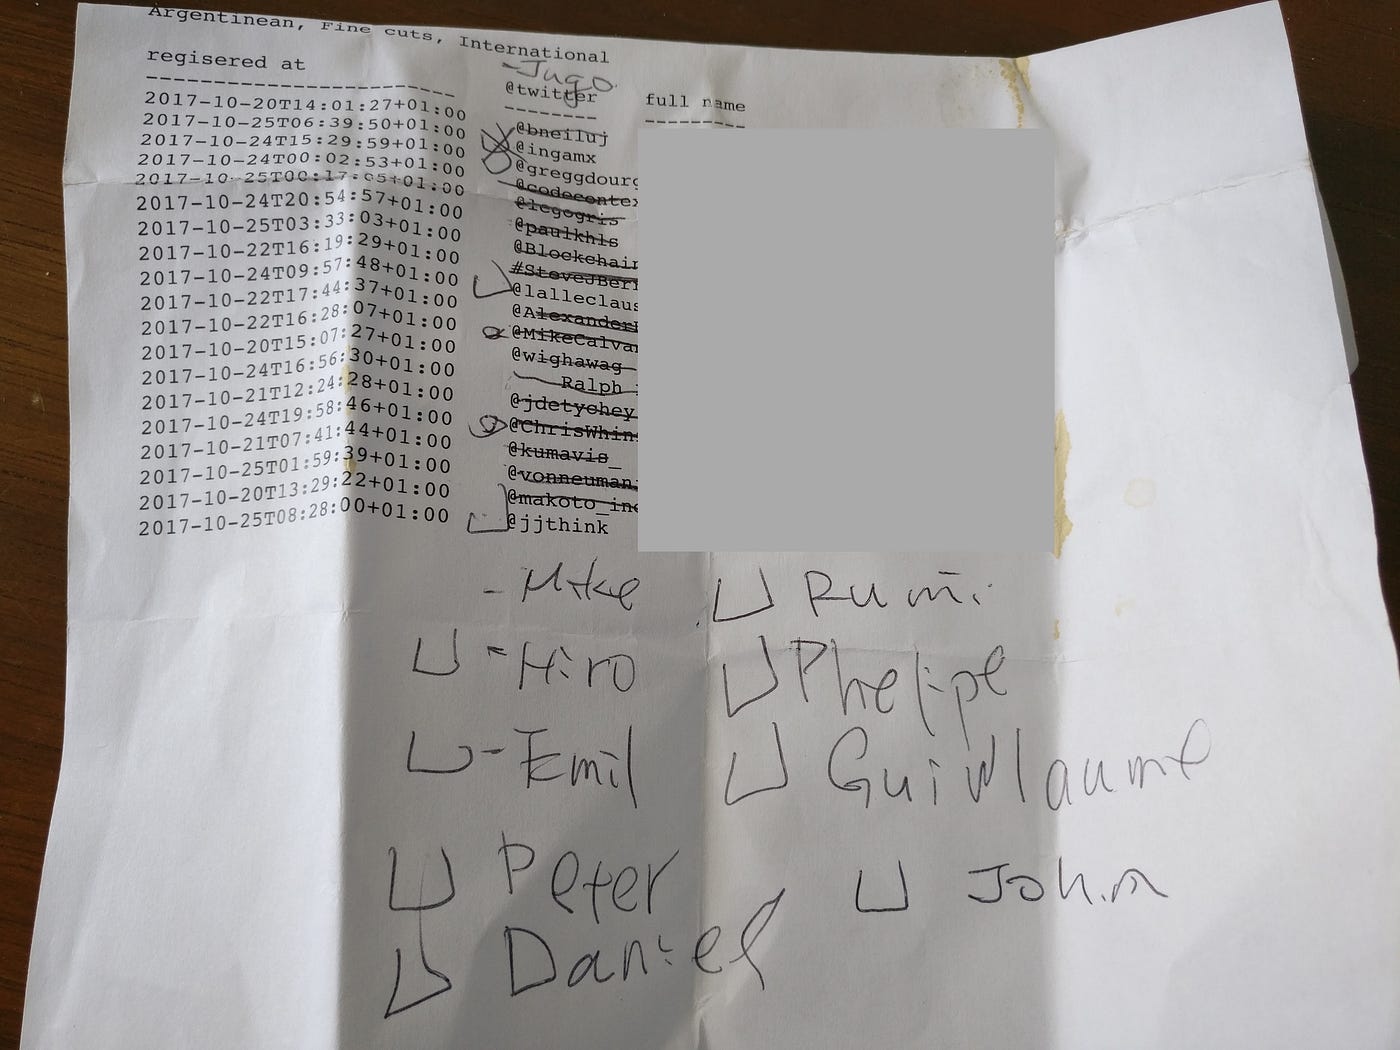 Argentinean, Fine cuts, International
regisered at
-Jugo
@twitter full name
2017-10-20T14:01:27+01:00 @bneiluj
2017-10-25T06:39:50+01:00 @ingamx
2017-10-24T15:29:59+01:00 @greggdourg
2017-10-24T00:02:53+01:00 @codecontex
2017-10-25T00:17:05+01:00 @legogris
2017-10-24T20:54:57+01:00 @paulkhls
2017-10-25T03:33:03+01:00 @Blockchain
2017-10-22T16:19:29+01:00 #SteveJBer
2017-10-24T09:57:48+01:00 @lalleclaus
2017-10-22T17:44:37+01:00 @Alexander
2017-10-22T16:28:07+01:00 @MikeCalvan
2017-10-20T15:07:27+01:00 @wighawag
2017-10-24T16:56:30+01:00 Ralph
2017-10-21T12:24:28+01:00 @jdetychey
2017-10-24T19:58:46+01:00 @ChrisWhin
2017-10-21T07:41:44+01:00 @kumavis_
2017-10-25T01:59:39+01:00 @vonneuman
2017-10-20T13:29:22+01:00 @makoto_ino
2017-10-25T08:28:00+01:00 @jjthink
- Mike Rumi
- Hiro Phelipe
- Emil Guillaume
Peter John
Daniel